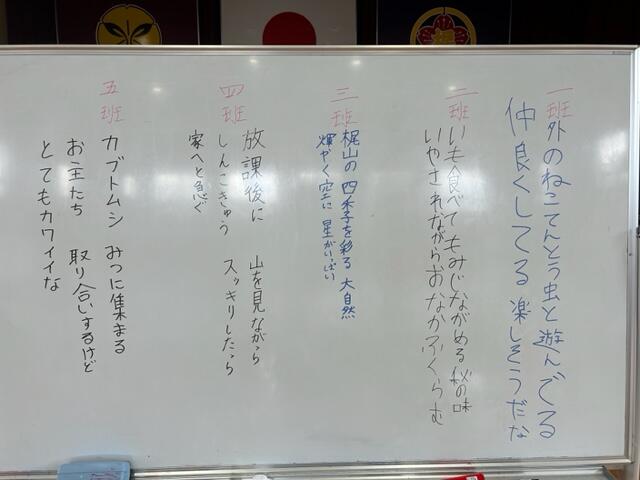 一班
外のねこてんとう虫と遊んでる
仲良くしてる 楽しそうだな
二班
いも食べてもみじながめる秋の味
いやされながらおなかふくらむ
三班
梶山の 四季を彩る 大自然
輝やく空に 星がいっぱい
四班
放課後に 山を見ながら
しんこきゅう スッキリしたら
家へと急ぐ
五班
カブトムシ みつに集まる
お主たち 取り合いするけど
とてもカワイイな